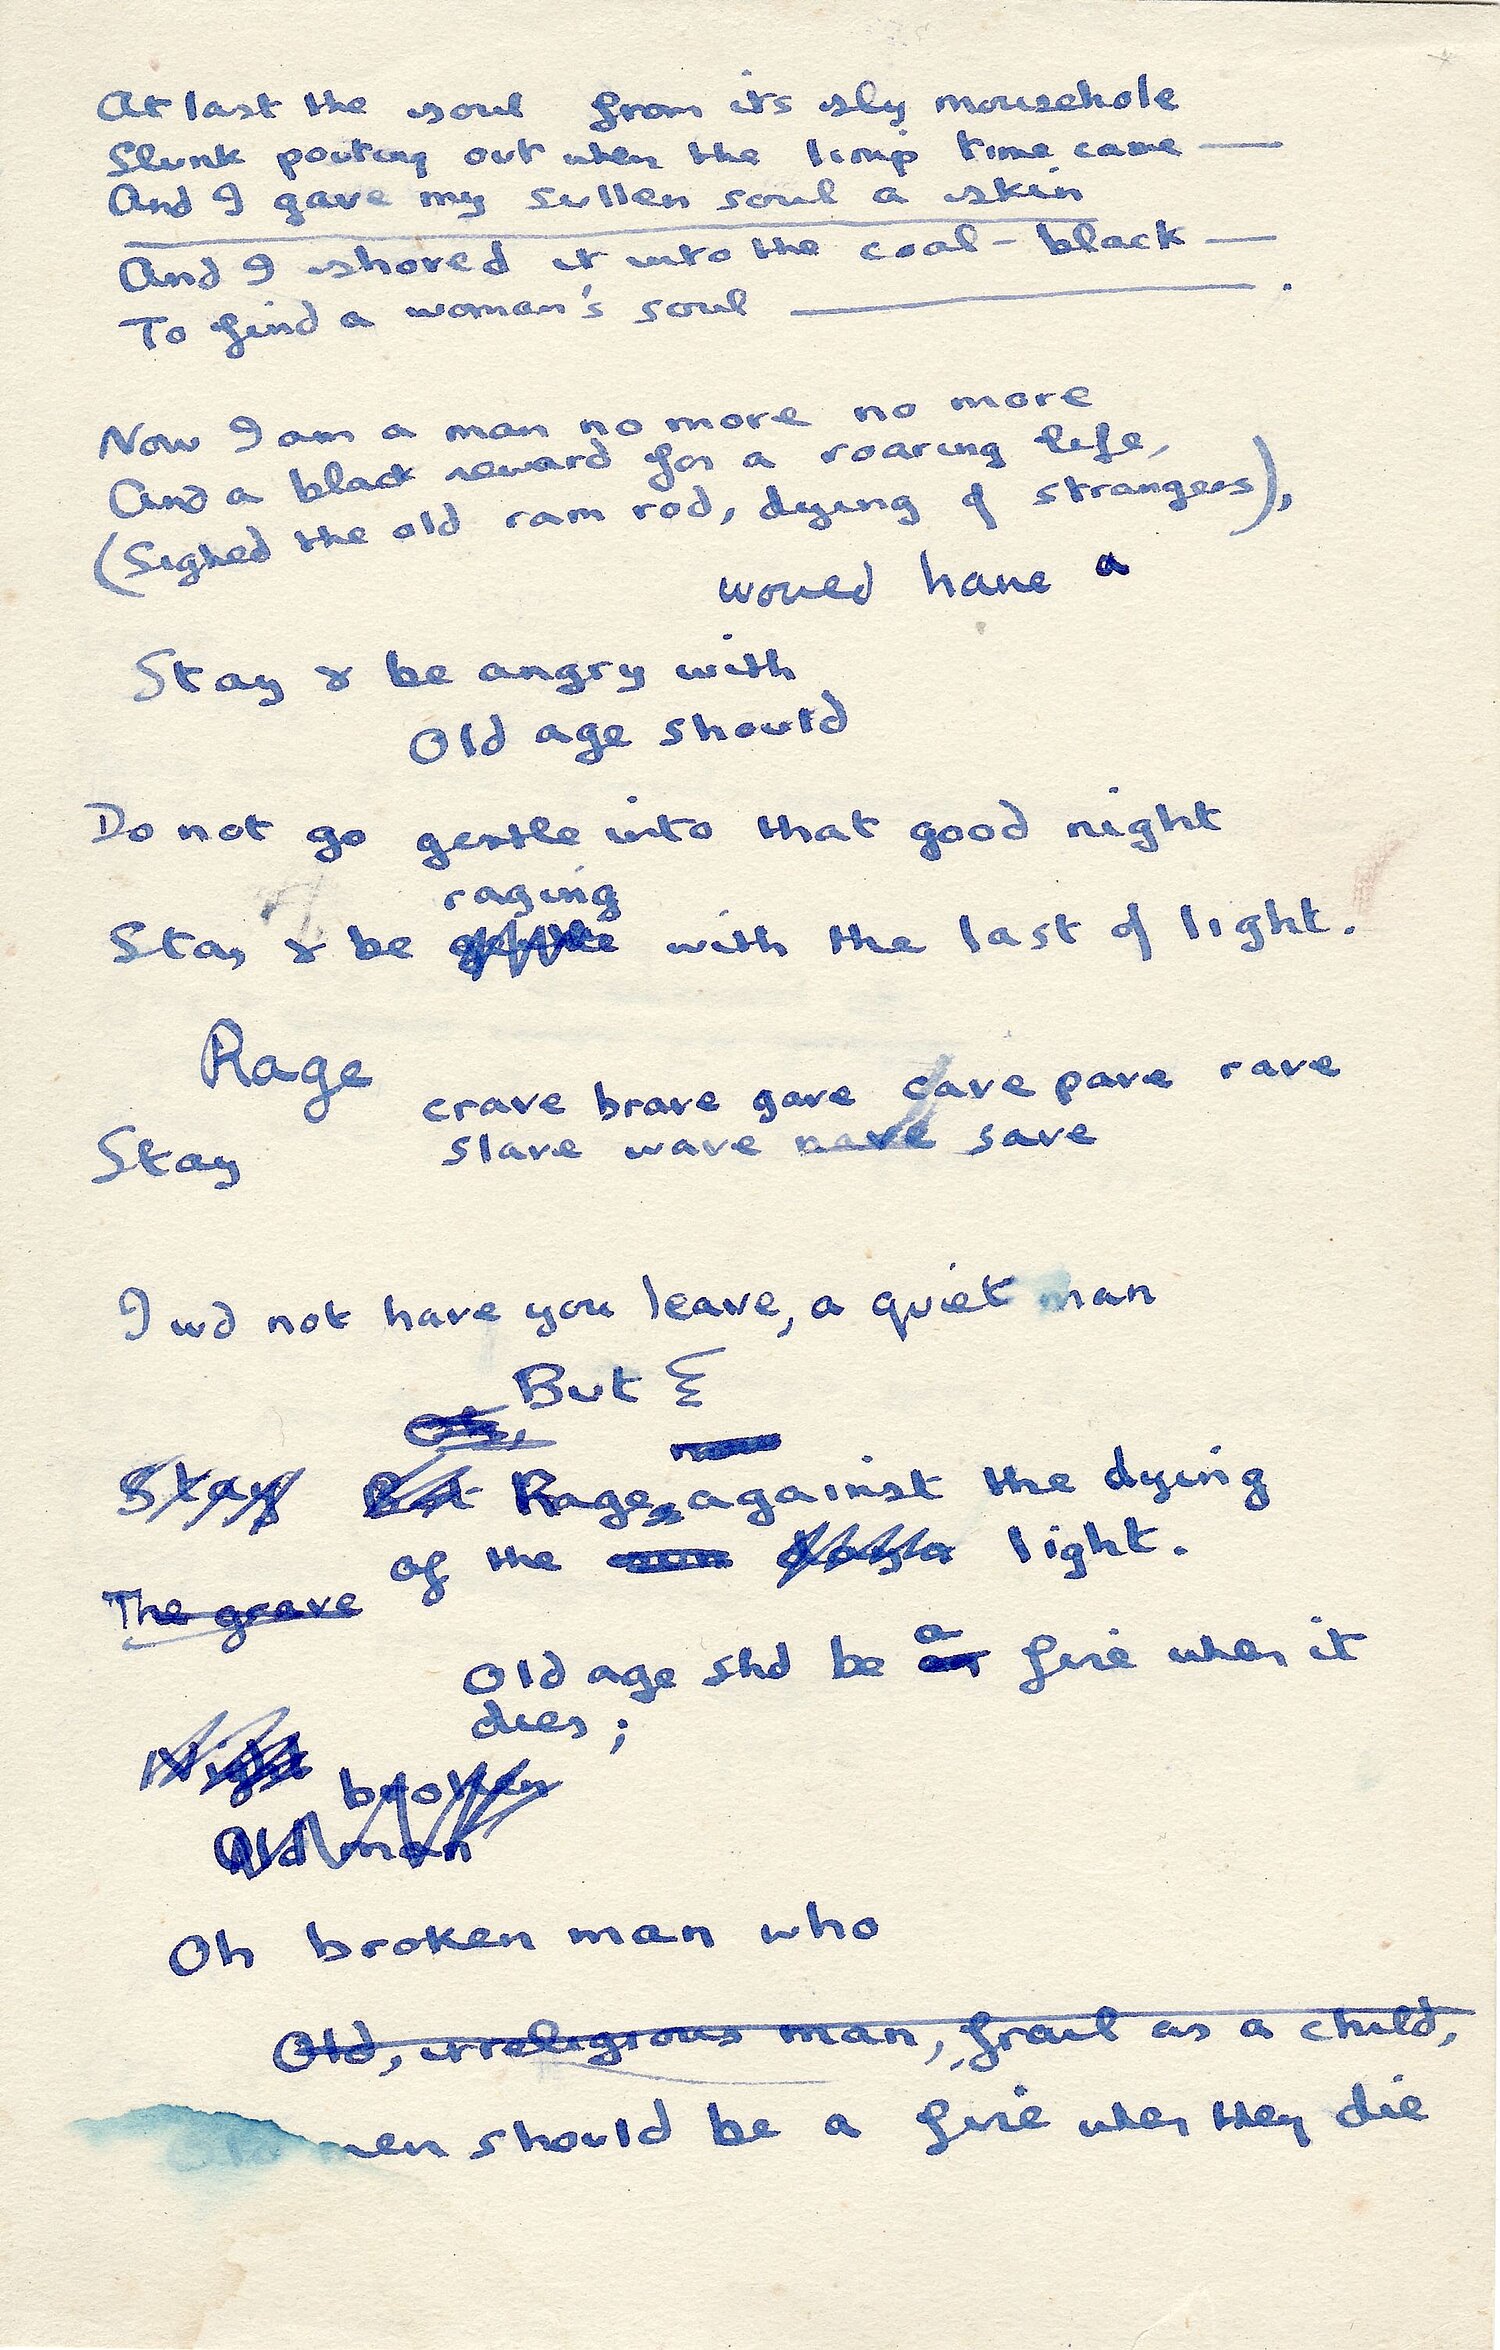 At last the soul from its sly mousehole
Slunk pouting out when the limp time came —
And I gave my sullen soul a skin
And I shoved it into the coal-black —
To find a woman's soul — .
Now I am a man no more no more
And a black reward for a roaring life,
(Sighed the old ram rod, dying of strangers),
would have a
Stay & be angry with
Old age should
Do not go gentle into that good night
raging
Stay & be gentle with the last of light.
Rage
crave brave gave cave pave rave
Stay
slave wave nave save
I wd not have you leave, a quiet man
But
Oh,
Stay But Rage, against the dying
of the sun light.
The grave
Old age shd be a fire when it
dies;
Night
broken
Old man
Oh broken man who
Old, irreligious man, frail as a child,
men should be a fire when they die